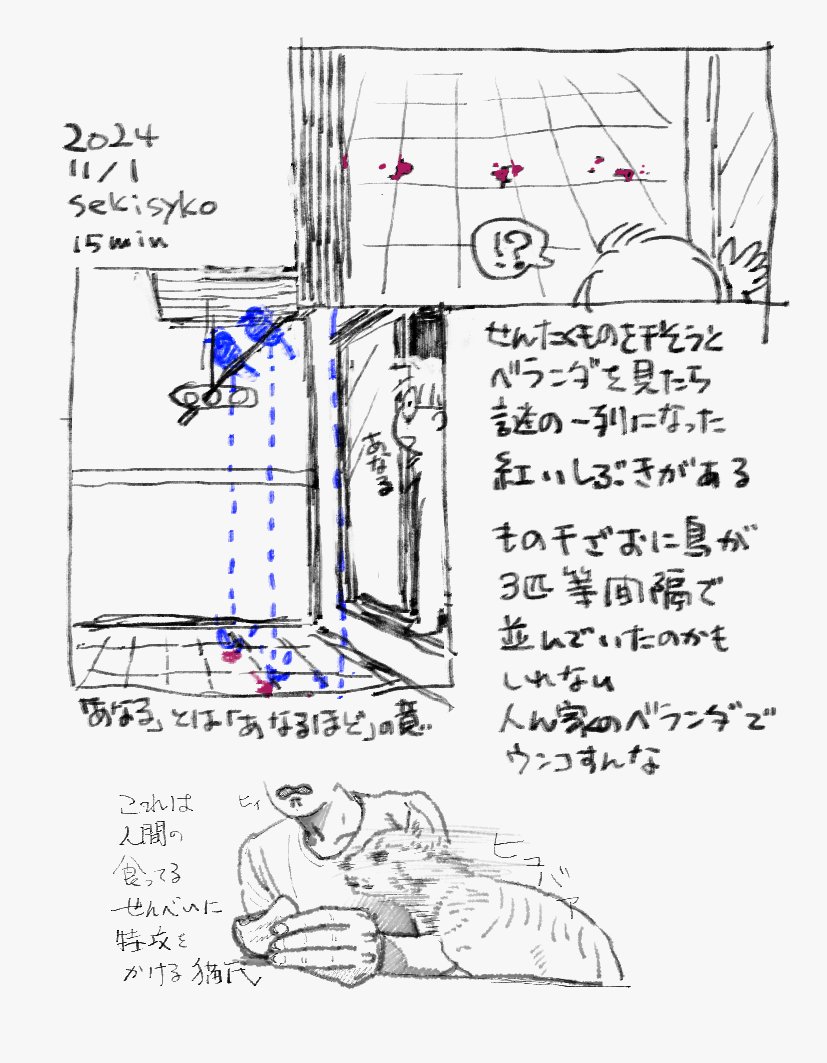 2024
11/1
sekisyko
15min
!?
せんたくものを干そうと
ベランダを見たら
謎の一列になった
紅いしぶきがある
もの干ざおに鳥が
3匹等間隔で
並んでいたのかも
しれない
人ん家のベランダで
ウンコすんな
あなる
「あなる」とは「あなるほど」の意
これは
人間の
食ってる
せんべいに
特攻を
かける猫氏
ヒィ
ヒュバァ